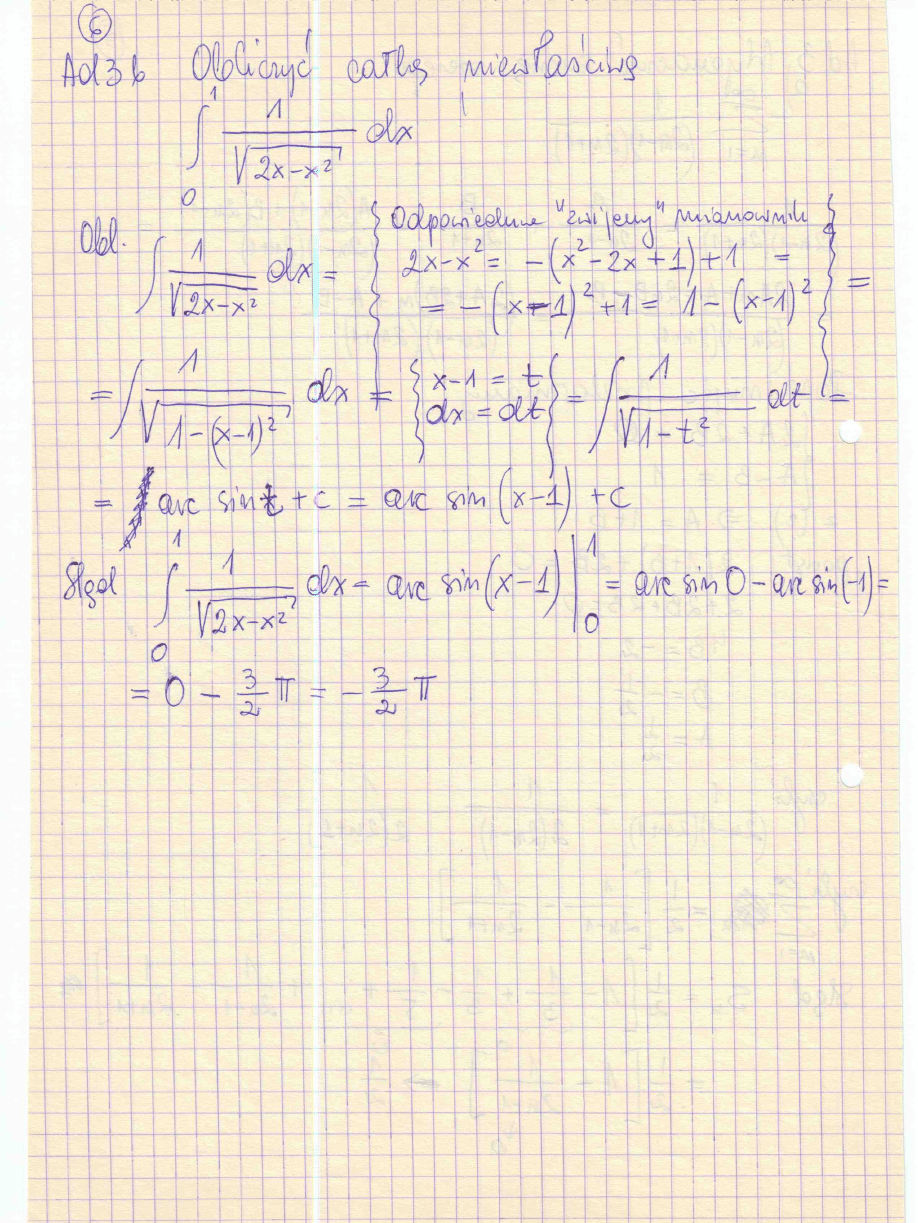 6
Ad 3 b Obliczyć całkę niewłaściwą
∫₀¹ 1/√(2x-x²) dx
Obl. ∫ 1/√(2x-x²) dx = { Odpowiednie "zwijemy" mianownik
2x-x² = -(x²-2x+1)+1 =
= -(x-1)²+1 = 1-(x-1)² } =
= ∫ 1/√(1-(x-1)²) dx = { x-1 = t
dx = dt } = ∫ 1/√(1-t²) dt =
= arc sin t + c = arc sin (x-1) + c
Stąd ∫₀¹ 1/√(2x-x²) dx = arc sin(x-1) |₀¹ = arc sin 0 - arc sin(-1) =
= 0 - 3/2 π = - 3/2 π